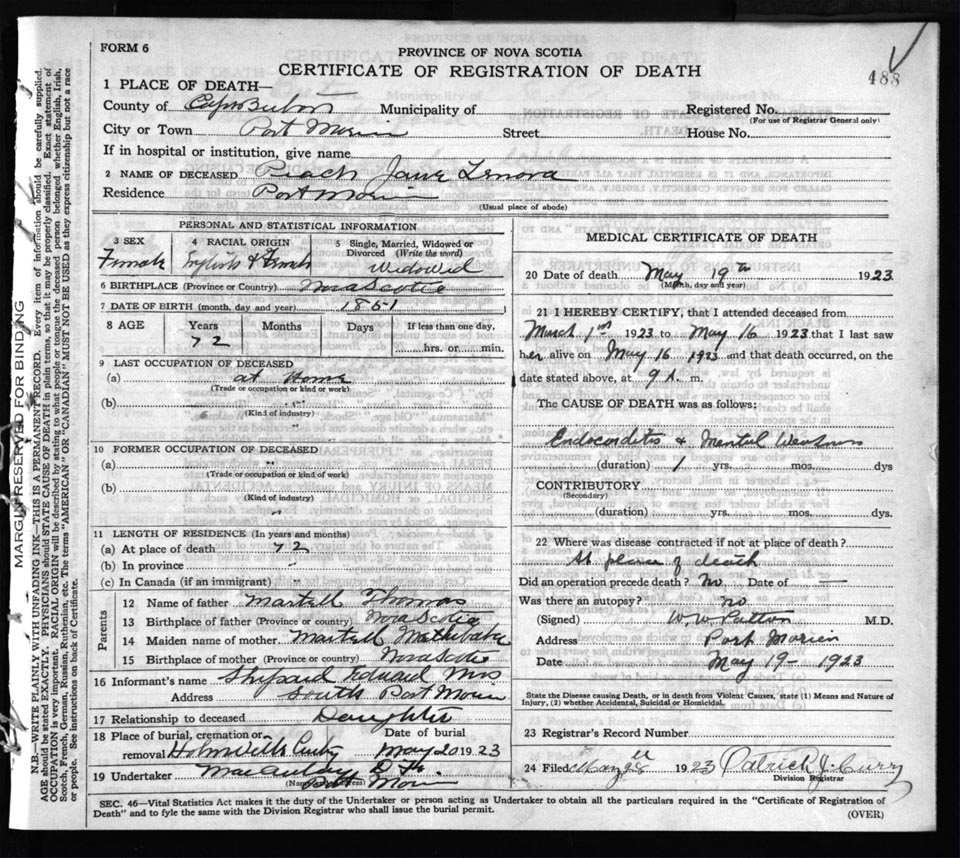 FORM 6
PROVINCE OF NOVA SCOTIA
CERTIFICATE OF REGISTRATION OF DEATH
488
1 PLACE OF DEATH—
County of Cape Breton Municipality of Registered No.
(For use of Registrar General only)
City or Town Port Morien Street House No.
If in hospital or institution, give name
2 NAME OF DECEASED Peach Jane Lenora
Residence Port Morien
(Usual place of abode)
PERSONAL AND STATISTICAL INFORMATION
3 SEX Female
4 RACIAL ORIGIN English & French
5 Single, Married, Widowed or Divorced (Write the word) Widowed
6 BIRTHPLACE (Province or Country) Nova Scotia
7 DATE OF BIRTH (month, day and year) 1851
8 AGE Years Months Days If less than one day,
72 hrs. or min.
9 LAST OCCUPATION OF DECEASED
(a) at Home
(Trade or occupation or kind of work)
(b) "
(Kind of industry)
10 FORMER OCCUPATION OF DECEASED
(a) "
(Trade or occupation or kind of work)
(b)
(Kind of industry)
"
11 LENGTH OF RESIDENCE (In years and months)
(a) At place of death 72
(b) In province "
(c) In Canada (if an immigrant) "
Parents
12 Name of father Martell Thomas
13 Birthplace of father (Province or country) Nova Scotia
14 Maiden name of mother Martell
15 Birthplace of mother (Province or country) Nova Scotia
16 Informant's name Shepard Edward Mrs
Address South Port Morien
17 Relationship to deceased Daughter
18 Place of burial, cremation or Date of burial
removal May 20 1923
19 Undertaker
Port Morien
MEDICAL CERTIFICATE OF DEATH
20 Date of death May 19th 1923
(Month, day and year)
21 I HEREBY CERTIFY, that I attended deceased from
March 1st 1923 to May 16 1923 that I last saw
her alive on May 16 1923 and that death occurred, on the
date stated above, at 9 A. m.
The CAUSE OF DEATH was as follows:
Endocarditis & Mental Weakness
(duration) 1 yrs. mos. dys
CONTRIBUTORY
(Secondary)
(duration) yrs. mos. dys.
22 Where was disease contracted if not at place of death?
At place of death
Did an operation precede death? no Date of —
Was there an autopsy? no
(Signed) W. W. Patton M.D.
Address Port Morien
Date May 19 – 1923
State the Disease causing Death, or in death from Violent Causes, state (1) Means and Nature of
Injury, (2) whether Accidental, Suicidal or Homicidal.
23 Registrar's Record Number
24 Filed May 1923 Patrick J. Curry
Division Registrar
SEC. 46—Vital Statistics Act makes it the duty of the Undertaker or person acting as Undertaker to obtain all the particulars required in the "Certificate of Registration of
Death" and to fyle the same with the Division Registrar who shall issue the burial permit.
(OVER)
MARGIN RESERVED FOR BINDING
N.B.—WRITE PLAINLY WITH UNFADING INK—THIS IS A PERMANENT RECORD. Every item of information should be carefully supplied.
AGE should be stated EXACTLY. PHYSICIANS should STATE CAUSE OF DEATH in plain terms, so that it may be properly classified. Exact statement of
OCCUPATION is very important. RACIAL ORIGIN will be described by stating to what people or tongue the deceased person belonged whether English, Irish,
Scotch, French, German, Russian, Ruthenian, etc. The terms "AMERICAN" OR "CANADIAN" MUST NOT BE USED as they express citizenship but not a race
or people. See instructions on back of Certificate.